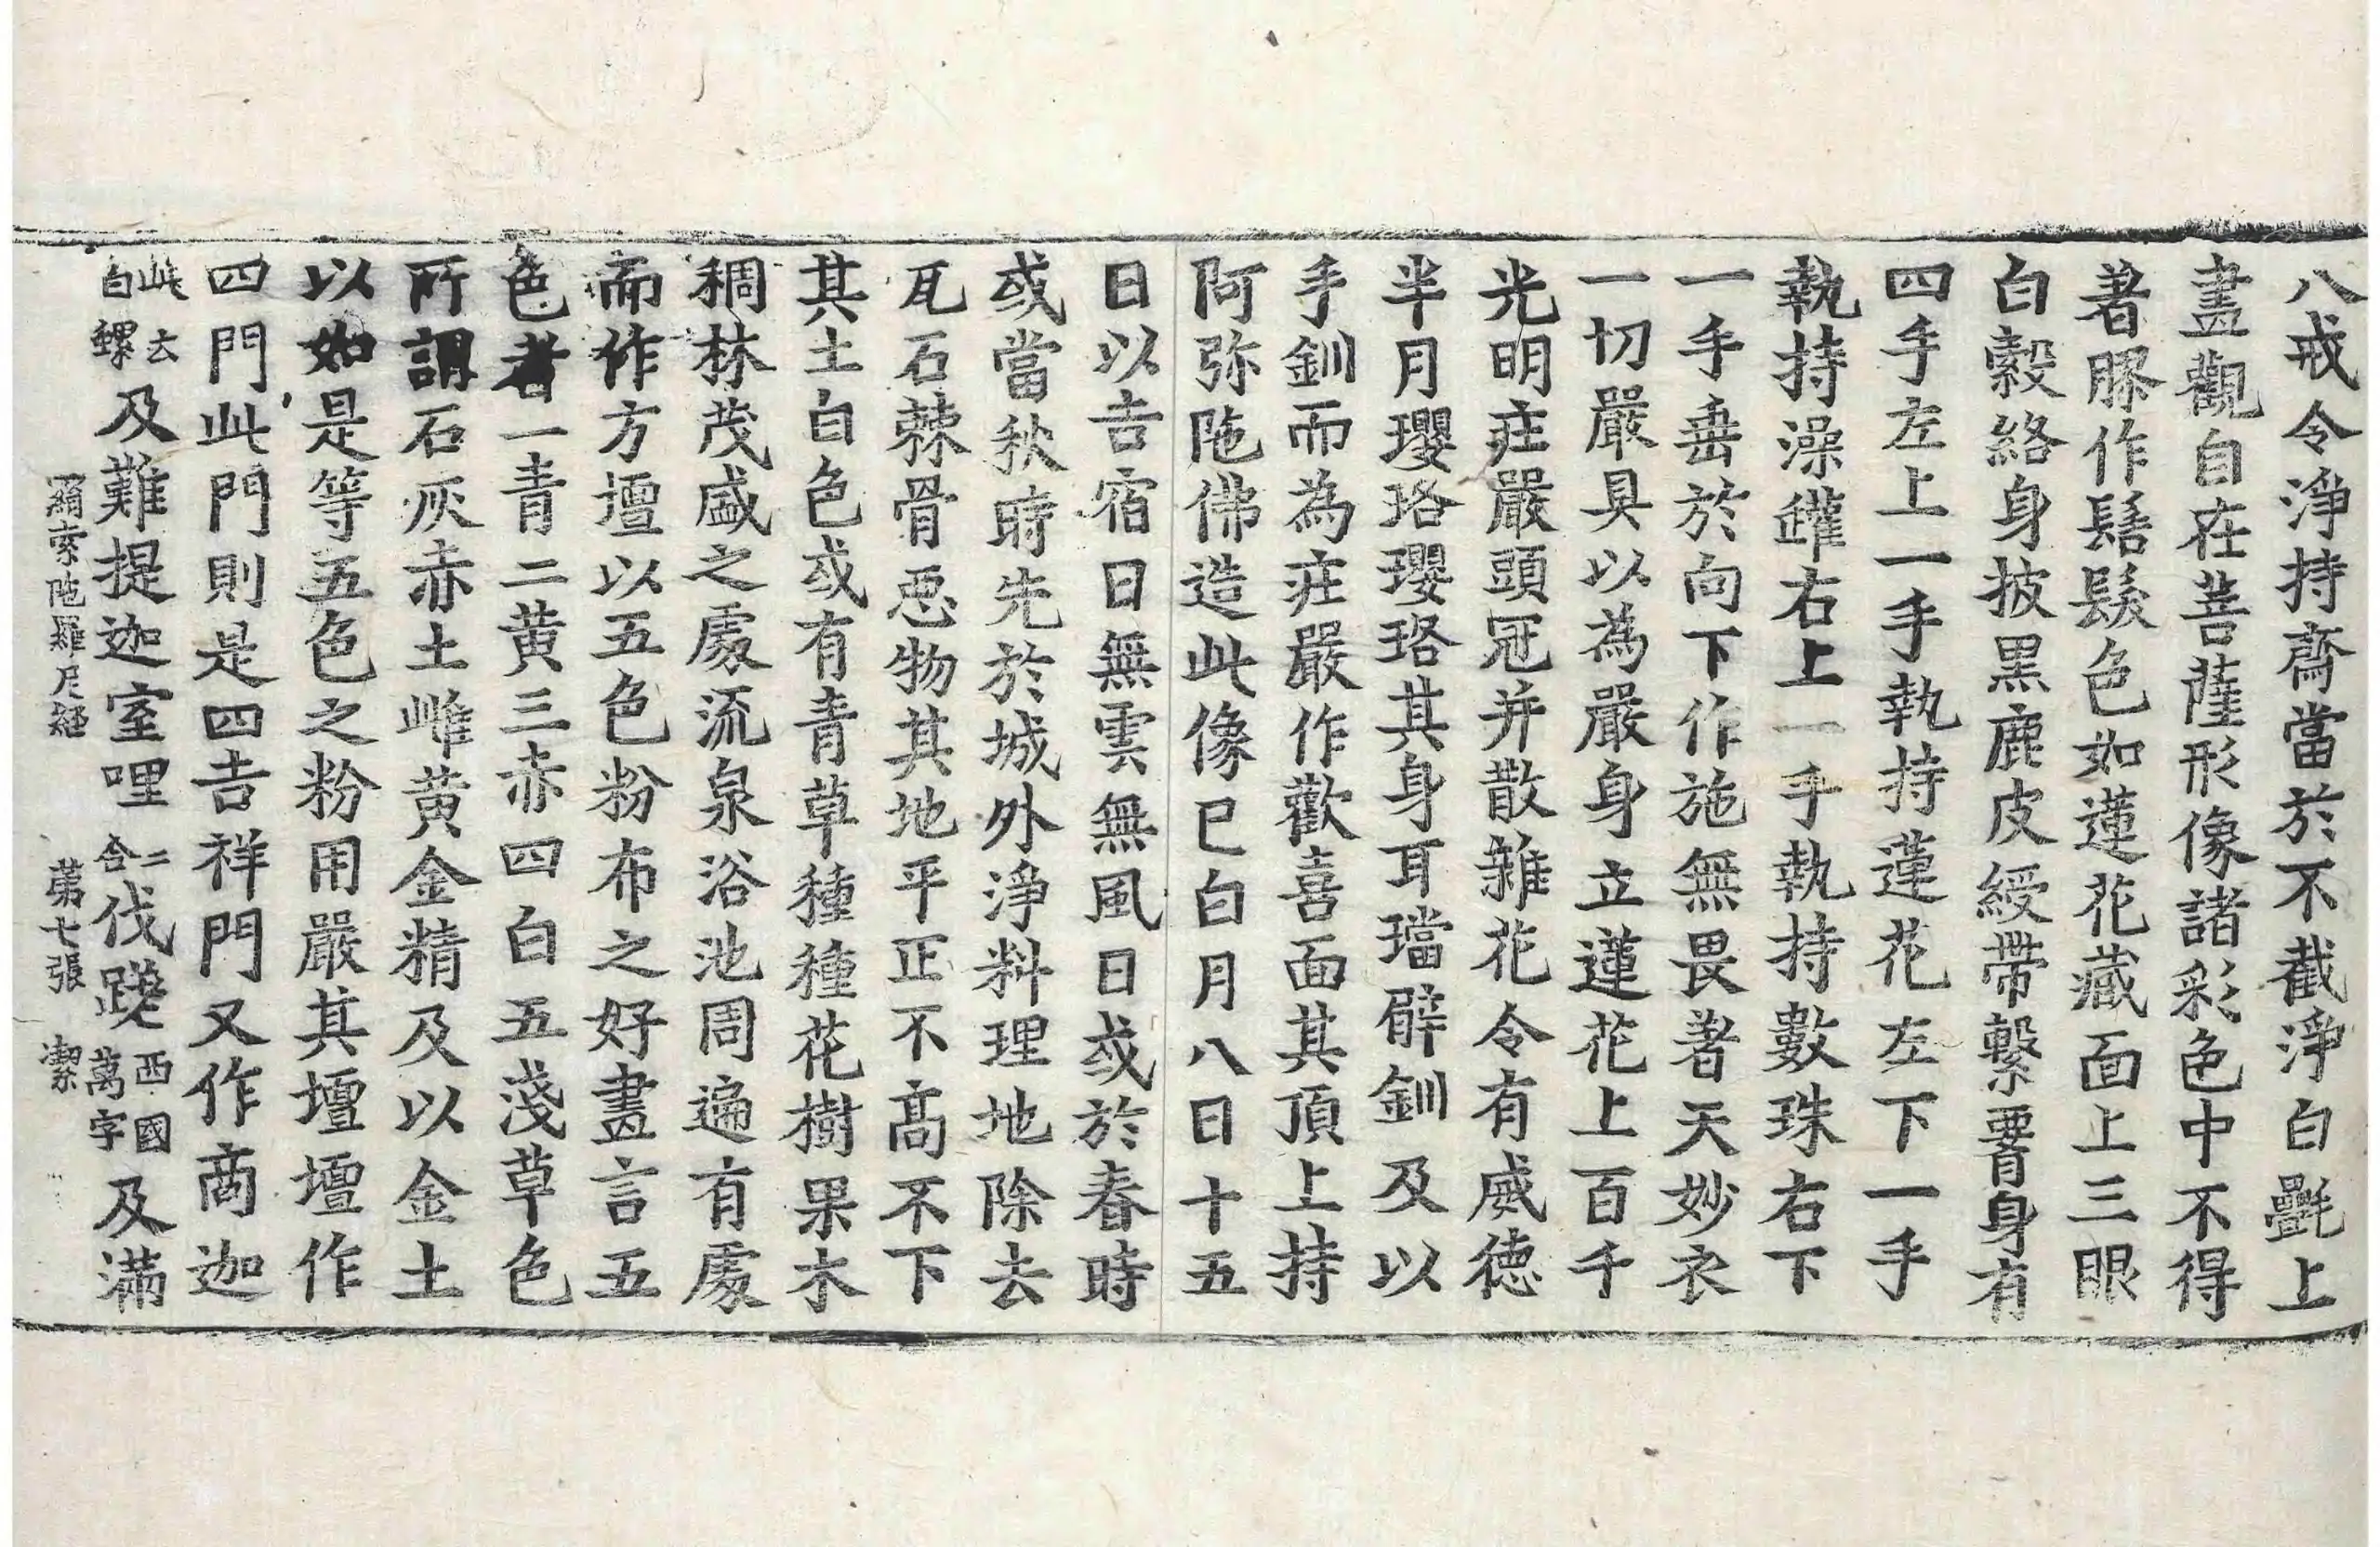 八戒令淨持齋當於不截淨白㲲上
畫觀自在菩薩形像諸彩色中不得
著膠作髻髮色如蓮花藏面上三眼
白縠絡身披黒鹿皮綬帶繫䙅身有
四手左上一手執持蓮花左下一手
執持澡罐右上一手執持數珠右下
一手垂於向下作施無畏著天妙衣
一切嚴具以為嚴身立蓮花上百千
光明莊嚴頭冠并散雜花令有威德
半月瓔珞瓔珞其身耳璫臂釧及以
手釧而為莊嚴作歡喜面其頂上持
阿弥陁佛造此像已白月八日十五
日以吉宿日無雲無風日或於春時
或當秋時先於城外淨料理地除去
瓦石棘骨惡物其地平正不高不下
其土白色或有青草種種花樹果木
稠林茂盛之處流泉浴池周遍有處
而作方壇以五色粉布之好畫言五
色者一青二黄三赤四白五淺草色
所謂石灰赤土雌黄金精及以金土
以如是等五色之粉用嚴其壇壇作
四門此門則是四吉祥門又作商迦
此云白螺及難提迦室哩二合伐蹉西國萬字及滿
羂索陁羅尼経 第七張 潔